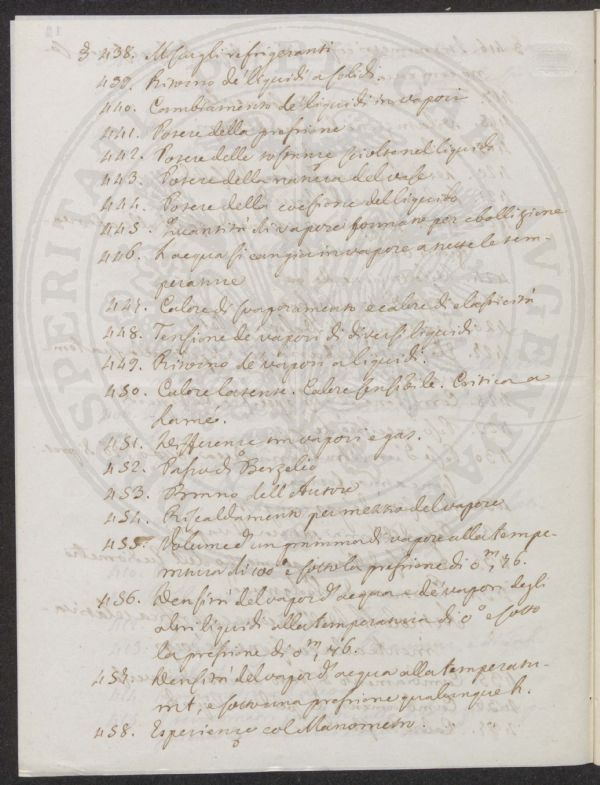 § 438. Miscugli refrigeranti
439. Ritorno de' liquidi a solidi.
440. Cambiamento de' liquidi in vapori
441. Potere della pressione
442. Potere delle sostanze sciolte nel liquido
443. Potere della natura del vase
444. Potere della coesione del liquido
445. Quantità di vapore formato per ebollizione
446. L'acqua si cangia in vapore a tutte le tem-
perature
447. Calore di svaporamento e calore di elasticità
448. Tensione de' vapori di diversi liquidi
449. Ritorno de' vapori a liquidi.
450. Calore latente. Calore sensibile. Critica a
Lamé.
451. Differenze tra vapori e gas.
452. Passo di Berzelio
453. Brano dell'Autore
454. Riscaldamento per mezzo del vapore
455. Volume d'un gramma di vapore alla tempe-
ratura di 100° e sotto la pressione di 0,m76.
456. Densità del vapor d'acqua e de' vapori degli
altri liquidi alla temperatura di 0° e sotto
la pressione di 0,m76.
457. Densità del vapor d'acqua alla temperatu-
ra t, e sotto una pressione qualunque h.
458. Esperienze col Manometro.
PROSPERITATI
AVGENDA